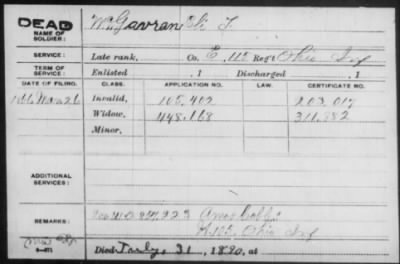 DEAD
NAME OF SOLDIER: McGavran Eli F.
SERVICE: Late rank, Co. E, 115 Reg't Ohio Inf.
TERM OF SERVICE: Enlisted , 1 Discharged , 1
DATE OF FILING. CLASS. APPLICATION NO. LAW. CERTIFICATE NO.
Invalid, 105,402 203,017
Widow, 448,168 311,882
Minor,
ADDITIONAL SERVICES:
REMARKS: 223 Amos
Ohio Inf
Died July 31, 1890, at